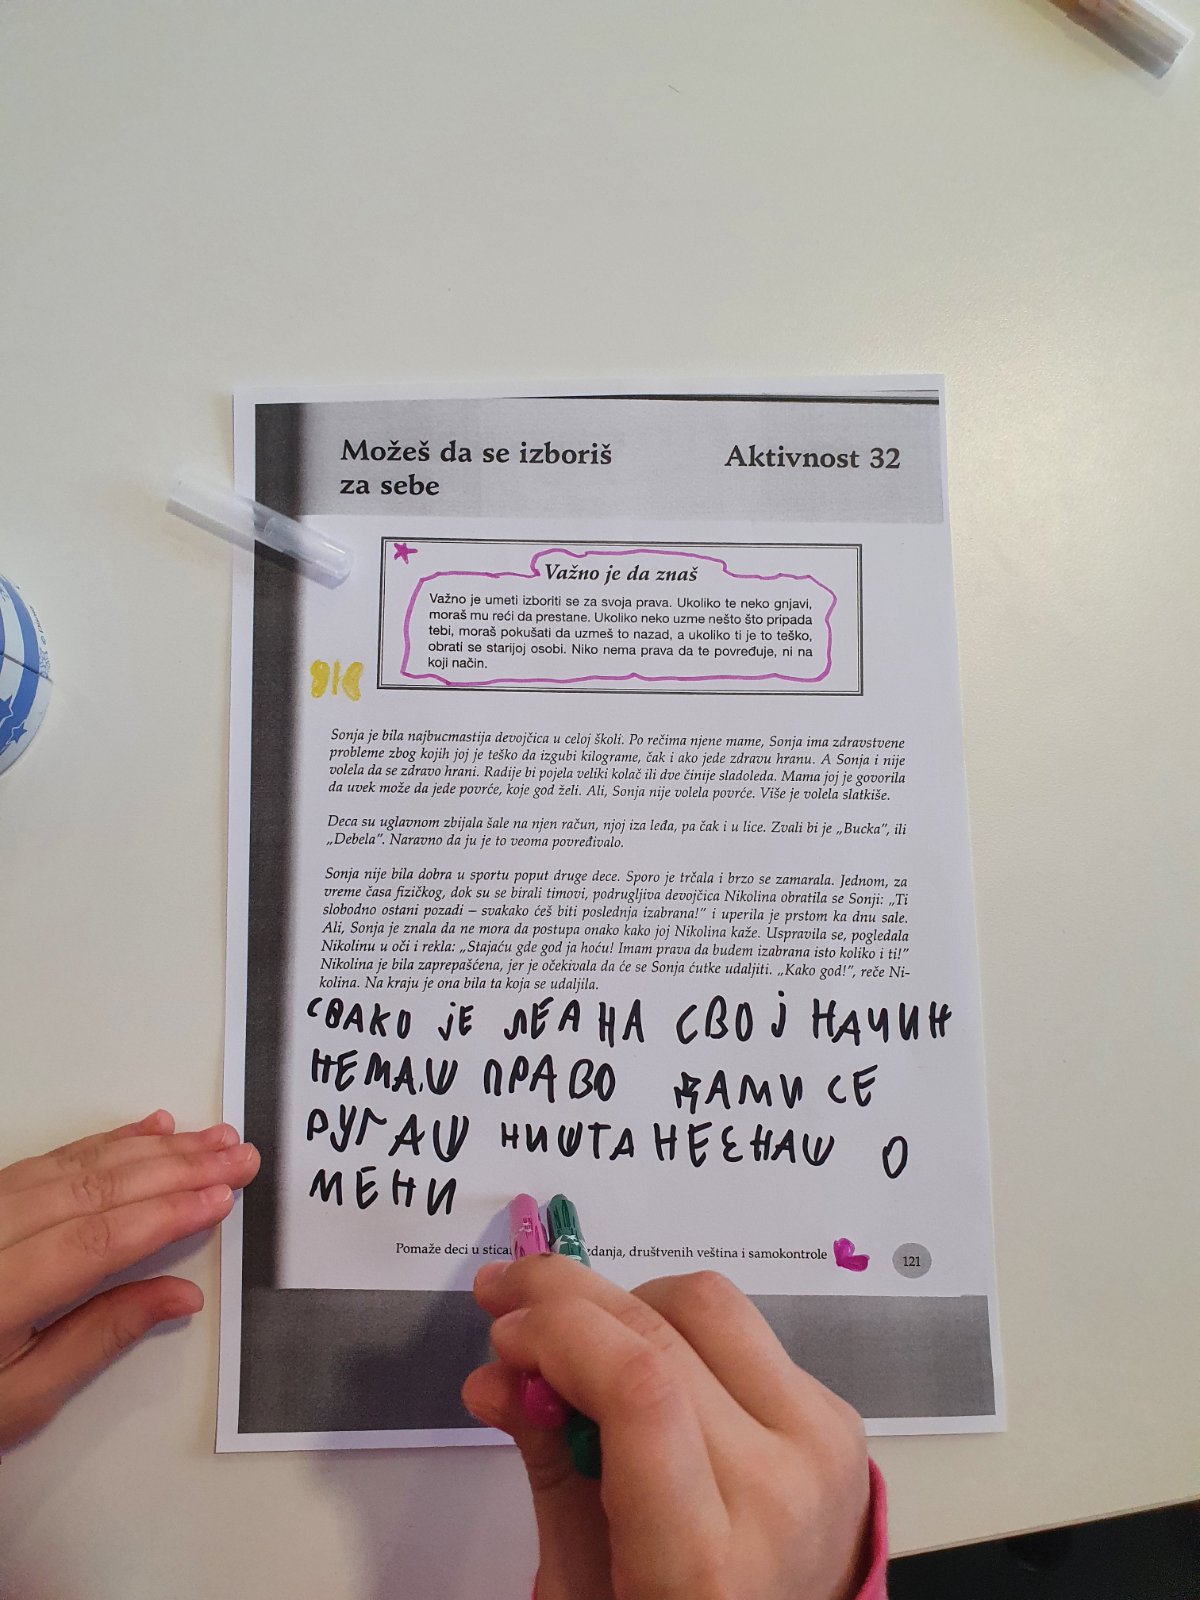 Možeš da se izboriš
za sebe
Aktivnost 32
Važno je da znaš
Važno je umeti izboriti se za svoja prava. Ukoliko te neko gnjavi,
moraš mu reći da prestane. Ukoliko neko uzme nešto što pripada
tebi, moraš pokušati da uzmeš to nazad, a ukoliko ti je to teško,
obrati se starijoj osobi. Niko nema prava da te povređuje, ni na
koji način.
Sonja je bila najbucmastija devojčica u celoj školi. Po rečima njene mame, Sonja ima zdravstvene
probleme zbog kojih joj je teško da izgubi kilograme, čak i ako jede zdravu hranu. A Sonja i nije
volela da se zdravo hrani. Radije bi pojela veliki kolač ili dve činije sladoleda. Mama joj je govorila
da uvek može da jede povrće, koje god želi. Ali, Sonja nije volela povrće. Više je volela slatkiše.
Deca su uglavnom zbijala šale na njen račun, njoj iza leđa, pa čak i u lice. Zvali bi je „Bucka”, ili
„Debela”. Naravno da ju je to veoma povređivalo.
Sonja nije bila dobra u sportu poput druge dece. Sporo je trčala i brzo se zamarala. Jednom, za
vreme časa fizičkog, dok su se birali timovi, podrugljiva devojčica Nikolina obratila se Sonji: „Ti
slobodno ostani pozadi – svakako ćeš biti poslednja izabrana!” i uperila je prstom ka dnu sale.
Ali, Sonja je znala da ne mora da postupa onako kako joj Nikolina kaže. Uspravila se, pogledala
Nikolinu u oči i rekla: „Stajaću gde god ja hoću! Imam prava da budem izabrana isto koliko i ti!”
Nikolina je bila zaprepašćena, jer je očekivala da će se Sonja ćutke udaljiti. „Kako god!”, reče Ni-
kolina. Na kraju je ona bila ta koja se udaljila.
СВАКО јЕ ЛЕА НА СВОЈ НАЧИН
НЕМАШ ПРАВО ДАМИ СЕ
РУГАШ НИШТА НЕЗНАШ О
МЕНИ
Pomaže deci u zdanja, društvenih veština i samokontrole
121